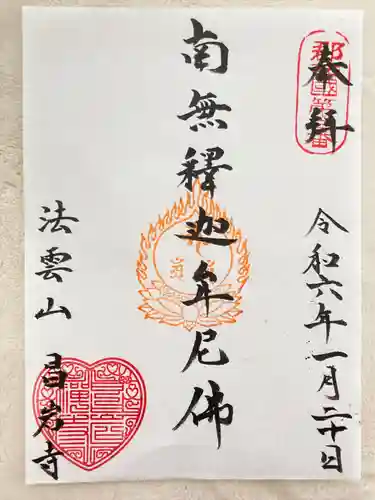 奉拜
令和六年一月二十日
南無釋迦牟尼佛
法雲山
昌岩寺